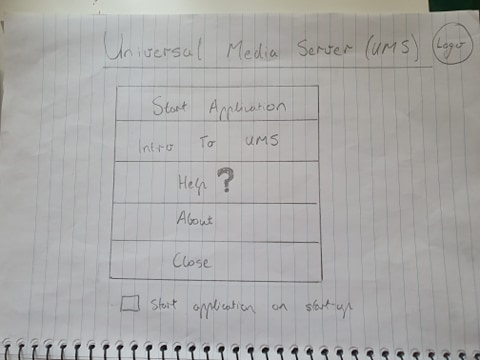 Universal Media Server (UMS)
Logo
Start Application
Intro To UMS
Help ?
About
Close
Start application on start-up